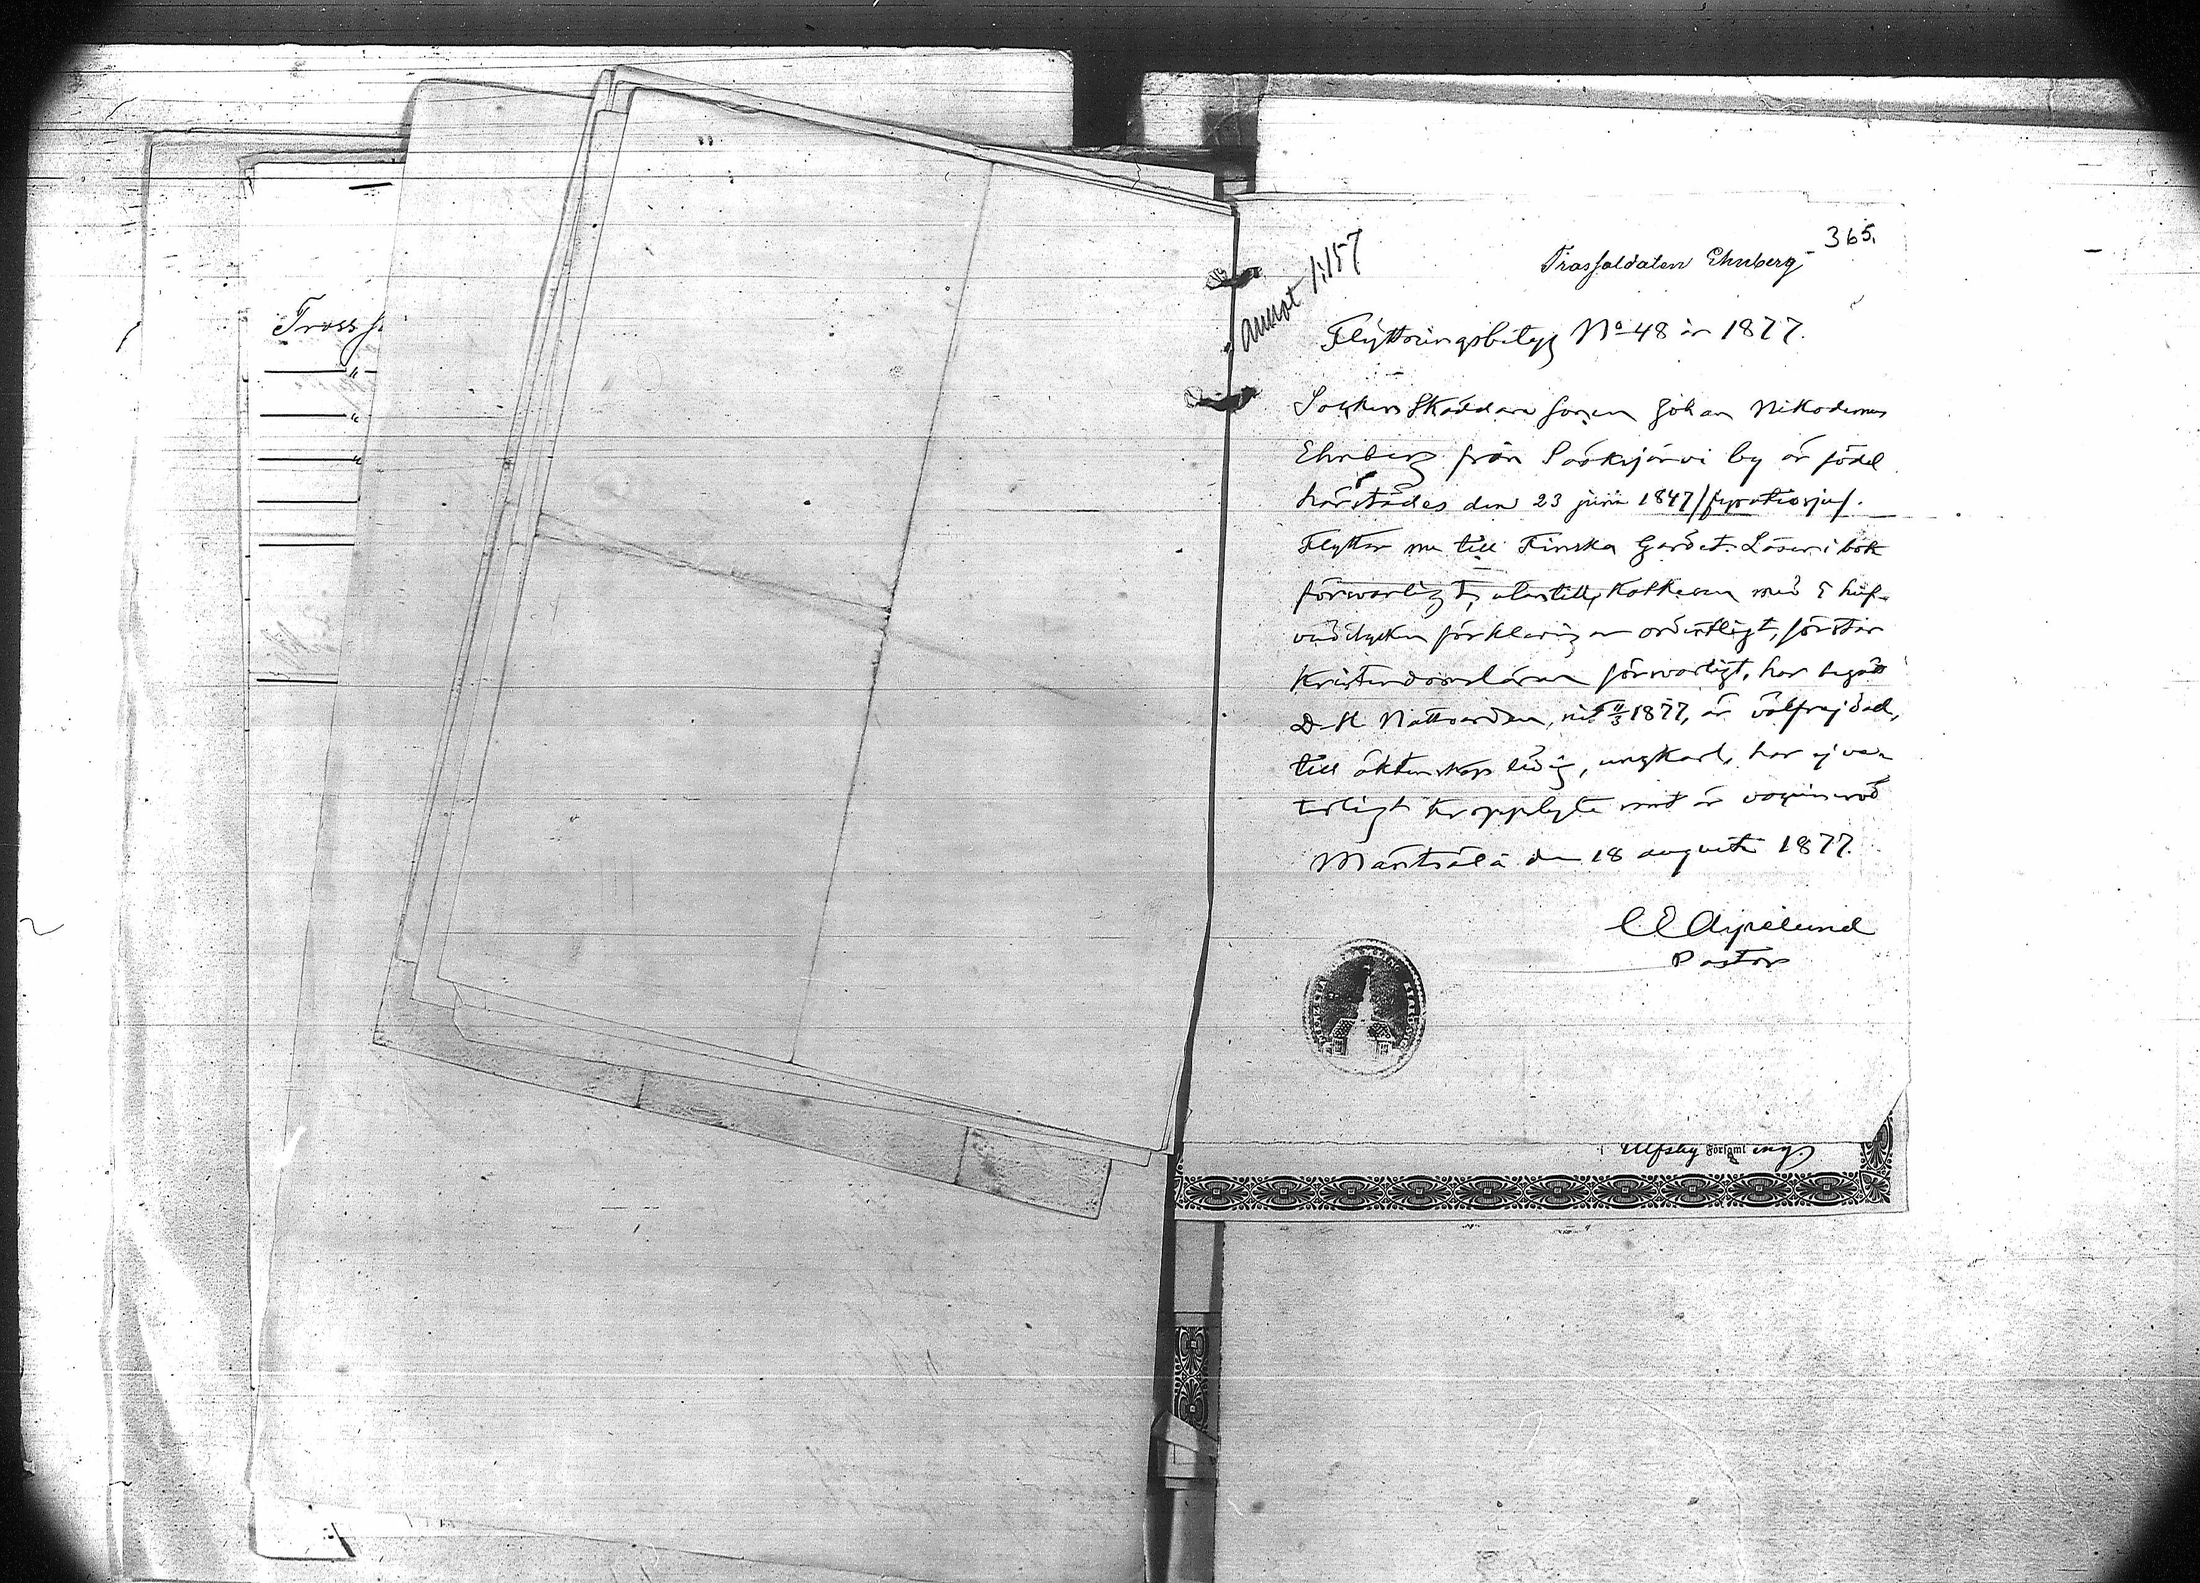 Tross
365.
Trossoldaten Ehnberg
annot. 1:157
Flyttningsbetyg No 48 år 1877.
Socken Skräddare sonen Johan Nikodemus
Ehnberg från Sääksjärvi by är född
härstädes den 23 juni 1847 /fyratiosju/.
Flyttar nu till Finska Gardet. Läser i bok
förvarligt, utantill, Katkesen med E huf-
vudstycken förklaring en ordentligt, förstår
Kristendomsläran förvarligt, har begått
D. H. Nattvarden, 1877, är välfrejdad,
till äktenskap ledig, ungkarl, har ej ve-
terligt kroppslyte samt är vaccinerad
Mäntsälä den 18 augusti 1877.
C E Aypelund
Pastor
Ulfsby Förſaml ing.